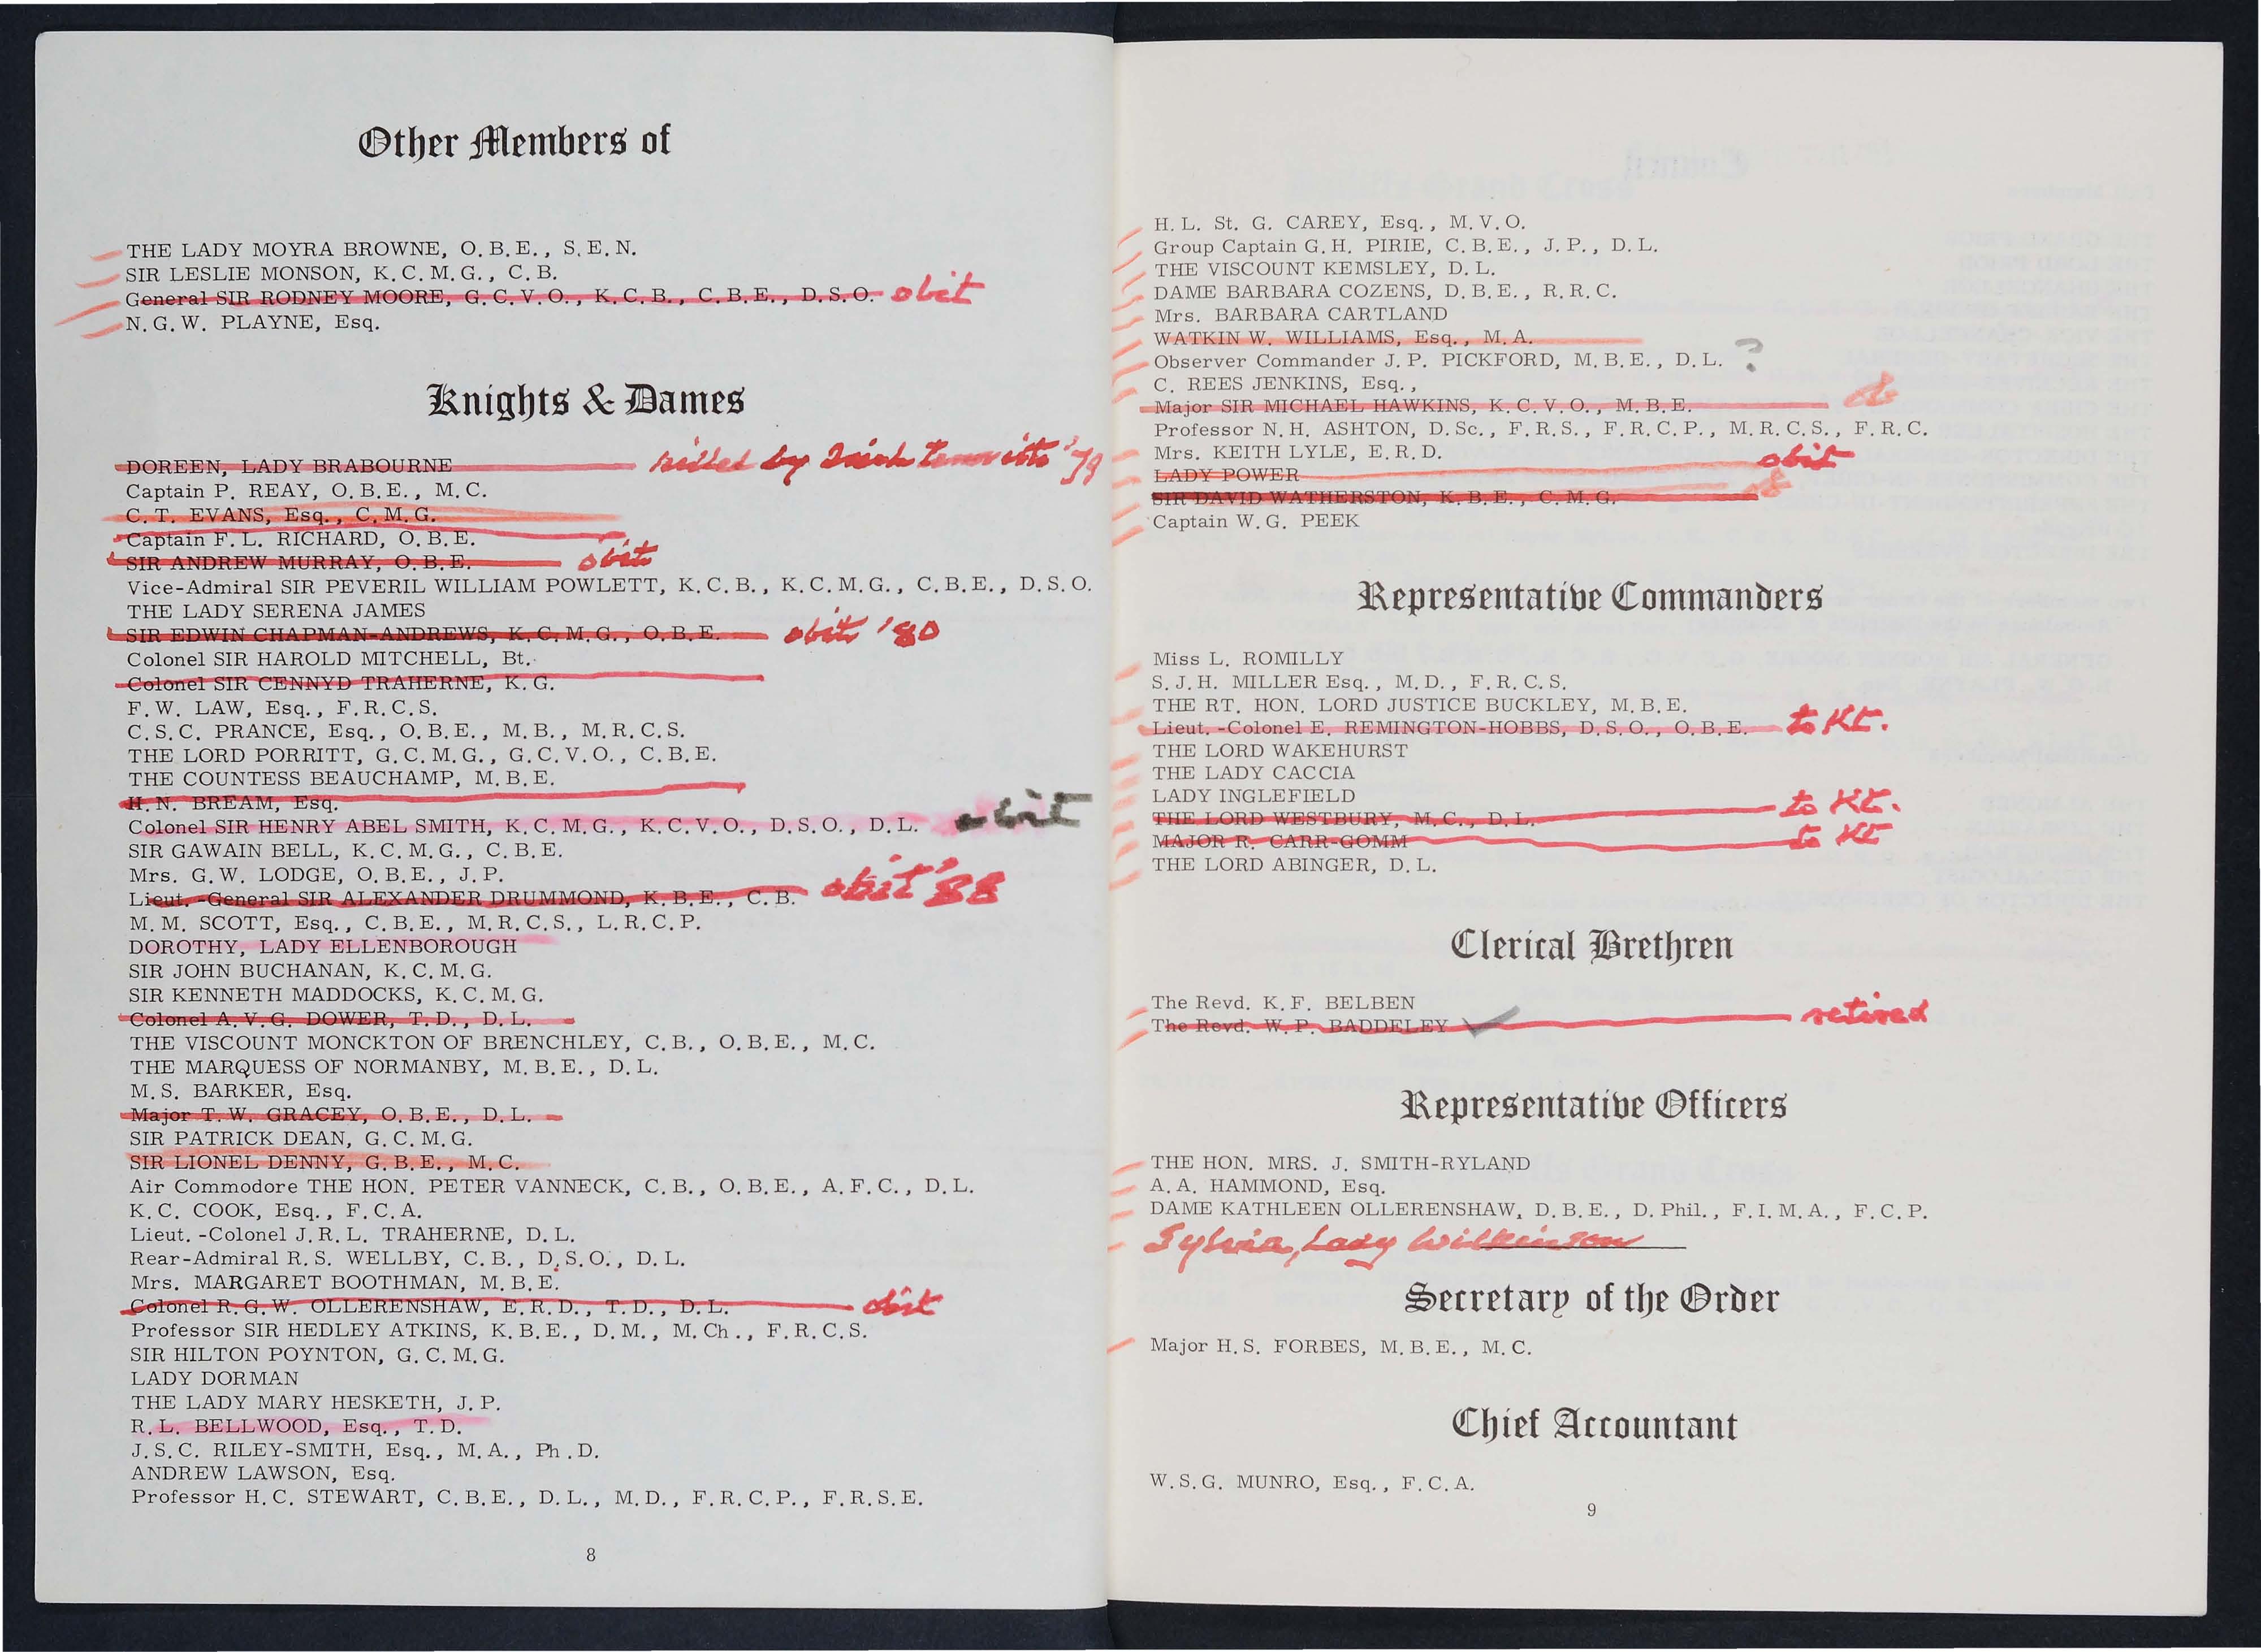 Other Members of
THE LADY MOYRA BROWNE, O.B.E., S.E.N.
SIR LESLIE MONSON, K.C.M.G., C.B.
General SIR RODNEY MOORE, G.C.V.O., K.C.B., C.B.E., D.S.O. obit
N.G.W. PLAYNE, Esq.
Knights & Dames
DOREEN, LADY BRABOURNE killed by Irish terrorists '79
Captain P. REAY, O.B.E., M.C.
C.T. EVANS, Esq., C.M.G.
Captain F.L. RICHARD, O.B.E.
SIR ANDREW MURRAY, O.B.E. obit
Vice-Admiral SIR PEVERIL WILLIAM POWLETT, K.C.B., K.C.M.G., C.B.E., D.S.O.
THE LADY SERENA JAMES
SIR EDWIN CHAPMAN-ANDREWS, K.C.M.G., O.B.E. obit '80
Colonel SIR HAROLD MITCHELL, Bt.
Colonel SIR CENNYD TRAHERNE, K.G.
F.W. LAW, Esq., F.R.C.S.
C.S.C. PRANCE, Esq., O.B.E., M.B., M.R.C.S.
THE LORD PORRITT, G.C.M.G., G.C.V.O., C.B.E.
THE COUNTESS BEAUCHAMP, M.B.E.
H.N. BREAM, Esq.
Colonel SIR HENRY ABEL SMITH, K.C.M.G., K.C.V.O., D.S.O., D.L. obit
SIR GAWAIN BELL, K.C.M.G., C.B.E.
Mrs. G.W. LODGE, O.B.E., J.P.
Lieut.-General SIR ALEXANDER DRUMMOND, K.B.E., C.B. obit '88
M.M. SCOTT, Esq., C.B.E., M.R.C.S., L.R.C.P.
DOROTHY, LADY ELLENBOROUGH
SIR JOHN BUCHANAN, K.C.M.G.
SIR KENNETH MADDOCKS, K.C.M.G.
Colonel A.V.G. DOWER, T.D., D.L.
THE VISCOUNT MONCKTON OF BRENCHLEY, C.B., O.B.E., M.C.
THE MARQUESS OF NORMANBY, M.B.E., D.L.
M.S. BARKER, Esq.
Major T.W. GRACEY, O.B.E., D.L.
SIR PATRICK DEAN, G.C.M.G.
SIR LIONEL DENNY, G.B.E., M.C.
Air Commodore THE HON. PETER VANNECK, C.B., O.B.E., A.F.C., D.L.
K.C. COOK, Esq., F.C.A.
Lieut.-Colonel J.R.L. TRAHERNE, D.L.
Rear-Admiral R.S. WELLBY, C.B., D.S.O., D.L.
Mrs. MARGARET BOOTHMAN, M.B.E.
Colonel R.G.W. OLLERENSHAW, E.R.D., T.D., D.L. obit
Professor SIR HEDLEY ATKINS, K.B.E., D.M., M.Ch., F.R.C.S.
SIR HILTON POYNTON, G.C.M.G.
LADY DORMAN
THE LADY MARY HESKETH, J.P.
R.L. BELLWOOD, Esq., T.D.
J.S.C. RILEY-SMITH, Esq., M.A., Ph.D.
ANDREW LAWSON, Esq.
Professor H.C. STEWART, C.B.E., D.L., M.D., F.R.C.P., F.R.S.E.
8
H.L. St. G. CAREY, Esq., M.V.O.
Group Captain G.H. PIRIE, C.B.E., J.P., D.L.
THE VISCOUNT KEMSLEY, D.L.
DAME BARBARA COZENS, D.B.E., R.R.C.
Mrs. BARBARA CARTLAND
WATKIN W. WILLIAMS, Esq., M.A.
Observer Commander J.P. PICKFORD, M.B.E., D.L. ?
C. REES JENKINS, Esq.,
Major SIR MICHAEL HAWKINS, K.C.V.O., M.B.E.
Professor N.H. ASHTON, D.Sc., F.R.S., F.R.C.P., M.R.C.S., F.R.C.
Mrs. KEITH LYLE, E.R.D.
LADY POWER obit
SIR DAVID WATHERSTON, K.B.E., C.M.G.
Captain W.G. PEEK
Representative Commanders
Miss L. ROMILLY
S.J.H. MILLER Esq., M.D., F.R.C.S.
THE RT. HON. LORD JUSTICE BUCKLEY, M.B.E.
Lieut.-Colonel E. REMINGTON-HOBBS, D.S.O., O.B.E. to Kt.
THE LORD WAKEHURST
THE LADY CACCIA
LADY INGLEFIELD
THE LORD WESTBURY, M.C., D.L. to Kt.
MAJOR R. CARR-GOMM to Kt
THE LORD ABINGER, D.L.
Clerical Brethren
The Revd. K.F. BELBEN
The Revd. W.P. BADDELEY retired
Representative Officers
THE HON. MRS. J. SMITH-RYLAND
A.A. HAMMOND, Esq.
DAME KATHLEEN OLLERENSHAW, D.B.E., D.Phil., F.I.M.A., F.C.P.
Sylvia, Lady Wilkinson
Secretary of the Order
Major H.S. FORBES, M.B.E., M.C.
Chief Accountant
W.S.G. MUNRO, Esq., F.C.A.
9